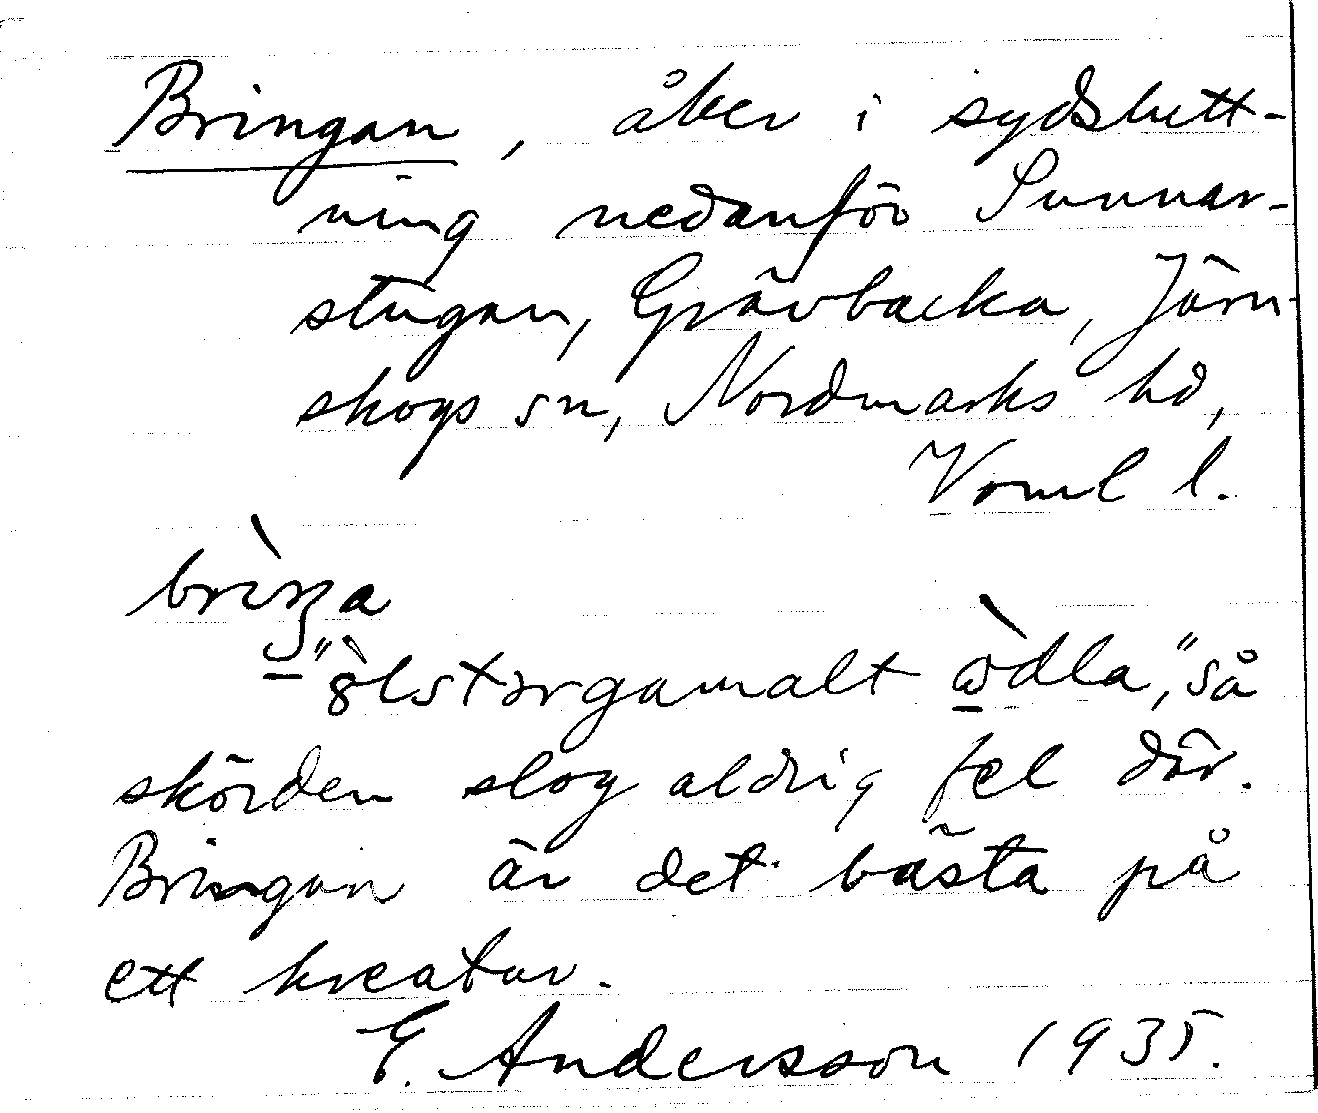 Bringan, åker i sydslutt-
ning nedanför Sunnar-
stugan, Grävbacka, Järn-
skogs sn, Nordmarks hd,
Vrml l.
brìŋa
"òlstorgamalt òdla," så
skörden slog aldrig fel där.
Bringan är det bästa på
ett kreatur.
E. Andersson 1935.